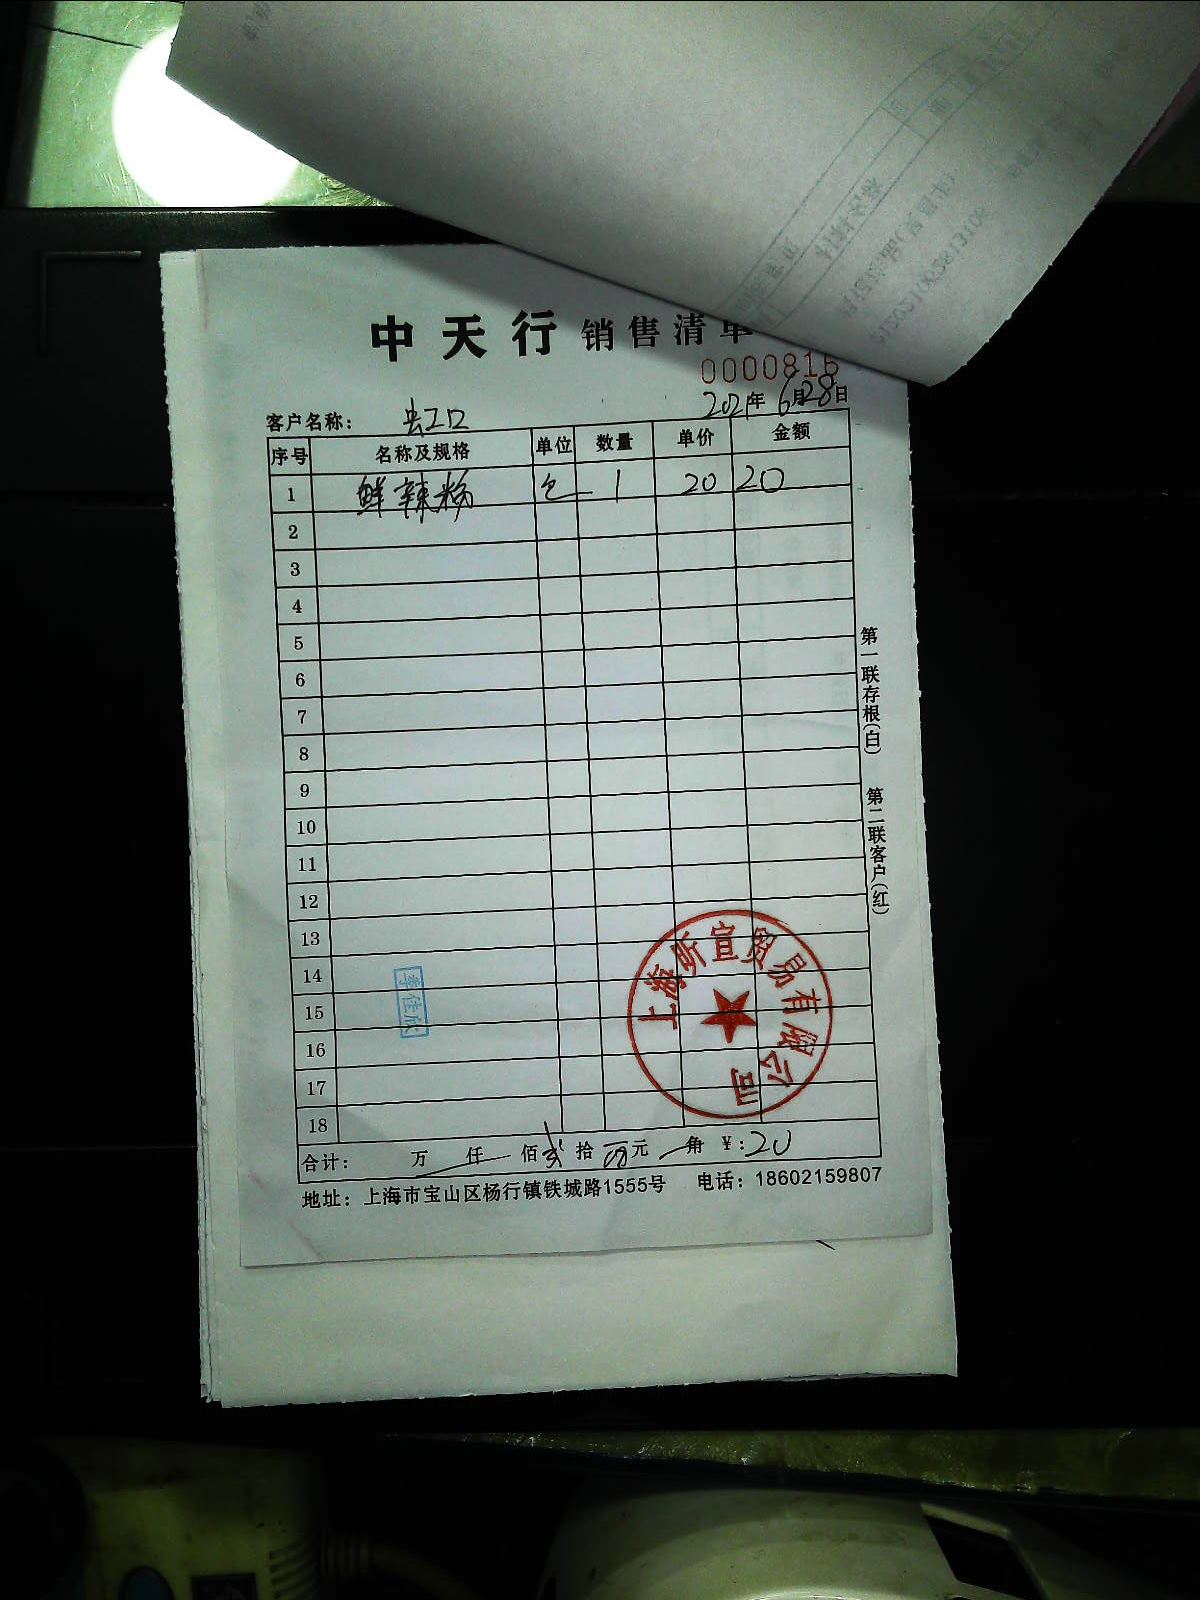 中天行 销售清单
0000816
2021年6月28日
客户名称： 虹口
序号 名称及规格 单位 数量 单价 金额
1 鲜辣粉 包 1 20 20
2
3
4
5
6
7
8
9
10
11
12
13
14
15
16
17
18
合计： 万 仟 佰 贰 拾 元 角 ¥:20
地址：上海市宝山区杨行镇铁城路1555号 电话：18602159807
第一联存根(白) 第二联客户(红)
上海昕宣贸易有限公司